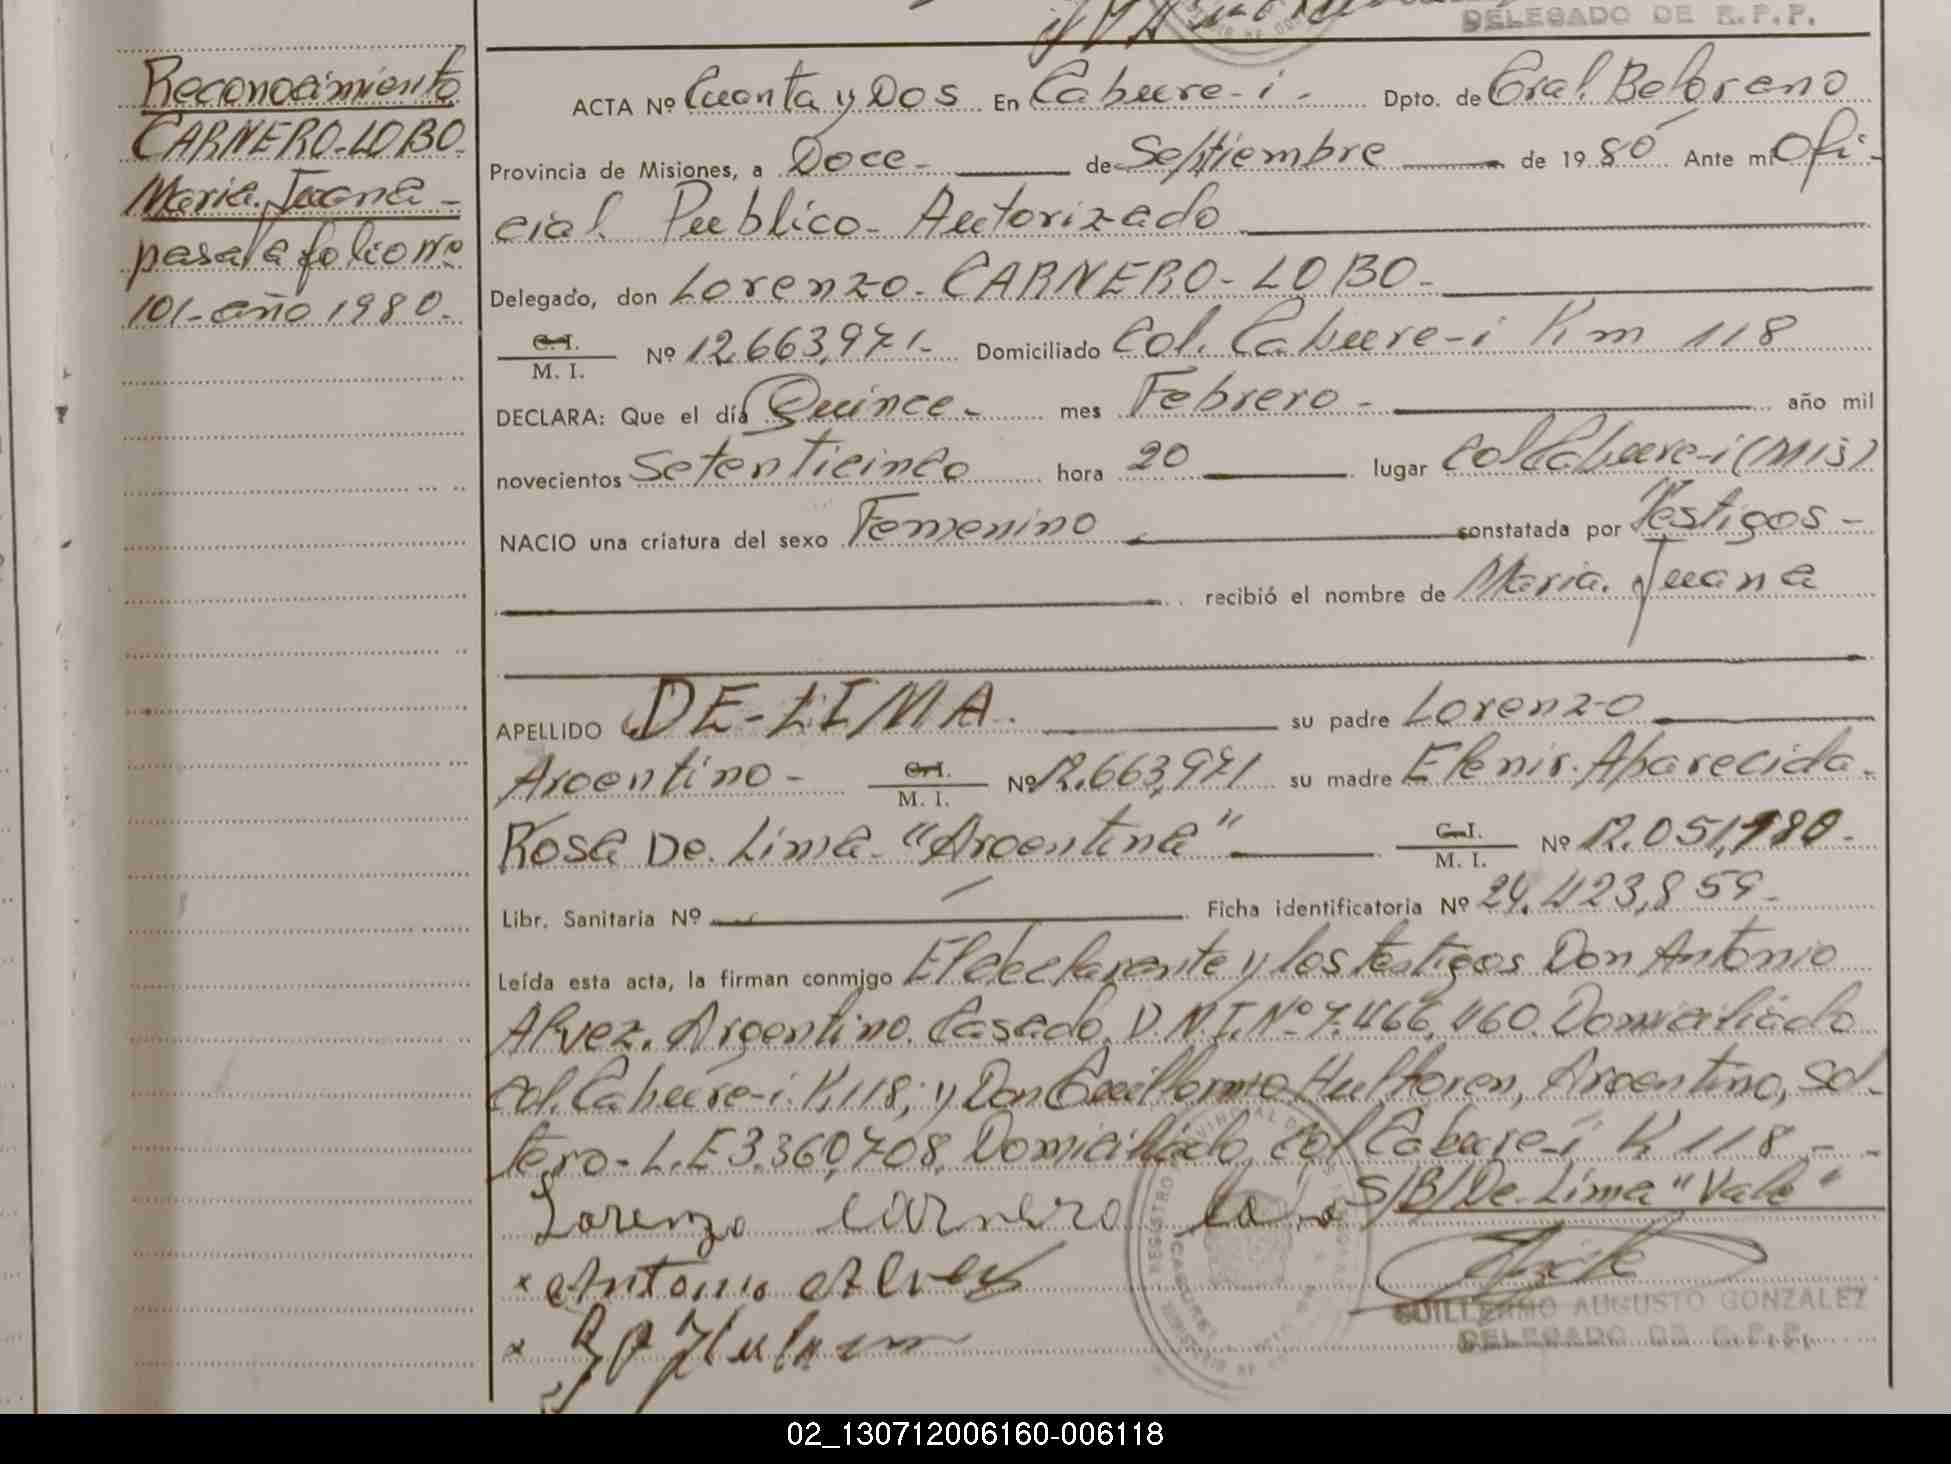 DELEGADO DE R.P.P.
Reconocimiento
CARNERO-LOBO.
Maria. Juana -
pasa a folio Nº
101- año 1980.
ACTA Nº Cuanta y Dos En Cabure-i - Dpto. de Gral. Belgrano
Provincia de Misiones, a Doce - de Septiembre de 1980 Ante mi Ofi-
cial Publico Autorizado
Delegado, don Lorenzo. CARNERO-LOBO-
C.I.
M. I. Nº 12.663,971- Domiciliado Col. Cabure-i Km 118
DECLARA: Que el día Quince - mes Febrero - año mil
novecientos Setenticinco hora 20 lugar Col Cabure-i (Mis)
NACIO una criatura del sexo Femenino constatada por Testigos -
recibió el nombre de Maria. Juana
APELLIDO DE-LIMA. su padre Lorenzo
Argentino - C.I.
M. I. Nº 12.663,971 su madre Elenir. Aparecida.
Rosa De. Lima "Argentina" C.I.
M. I. Nº 12.051,980-
Libr. Sanitaria Nº Ficha identificatoria Nº 24.423,859-
Leída esta acta, la firman conmigo El declarante y los testigos Don Antonio
Alvez. Argentino. Casado. D.N.I. Nº 7.466,460. Domiciliado
Col. Cabure-i. K.118; y Don Guillermo Hultgren, Argentino, Sol-
tero- L.E 3.360,708. Domiciliado Col Cabure-i K 118 - -
S/B/De. Lima "Vale"
Lorenzo carnero lobo
x Antonio Alvez
x
GUILLERMO AUGUSTO GONZALEZ
DELEGADO DE R.P.P.
02_130712006160-006118